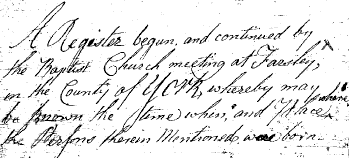 A Register begun, and continued by
the Baptist Church meeting at Farsley,
in the County of YORK, whereby may
be known the time when, and Place where
the Persons therein Mentioned was born